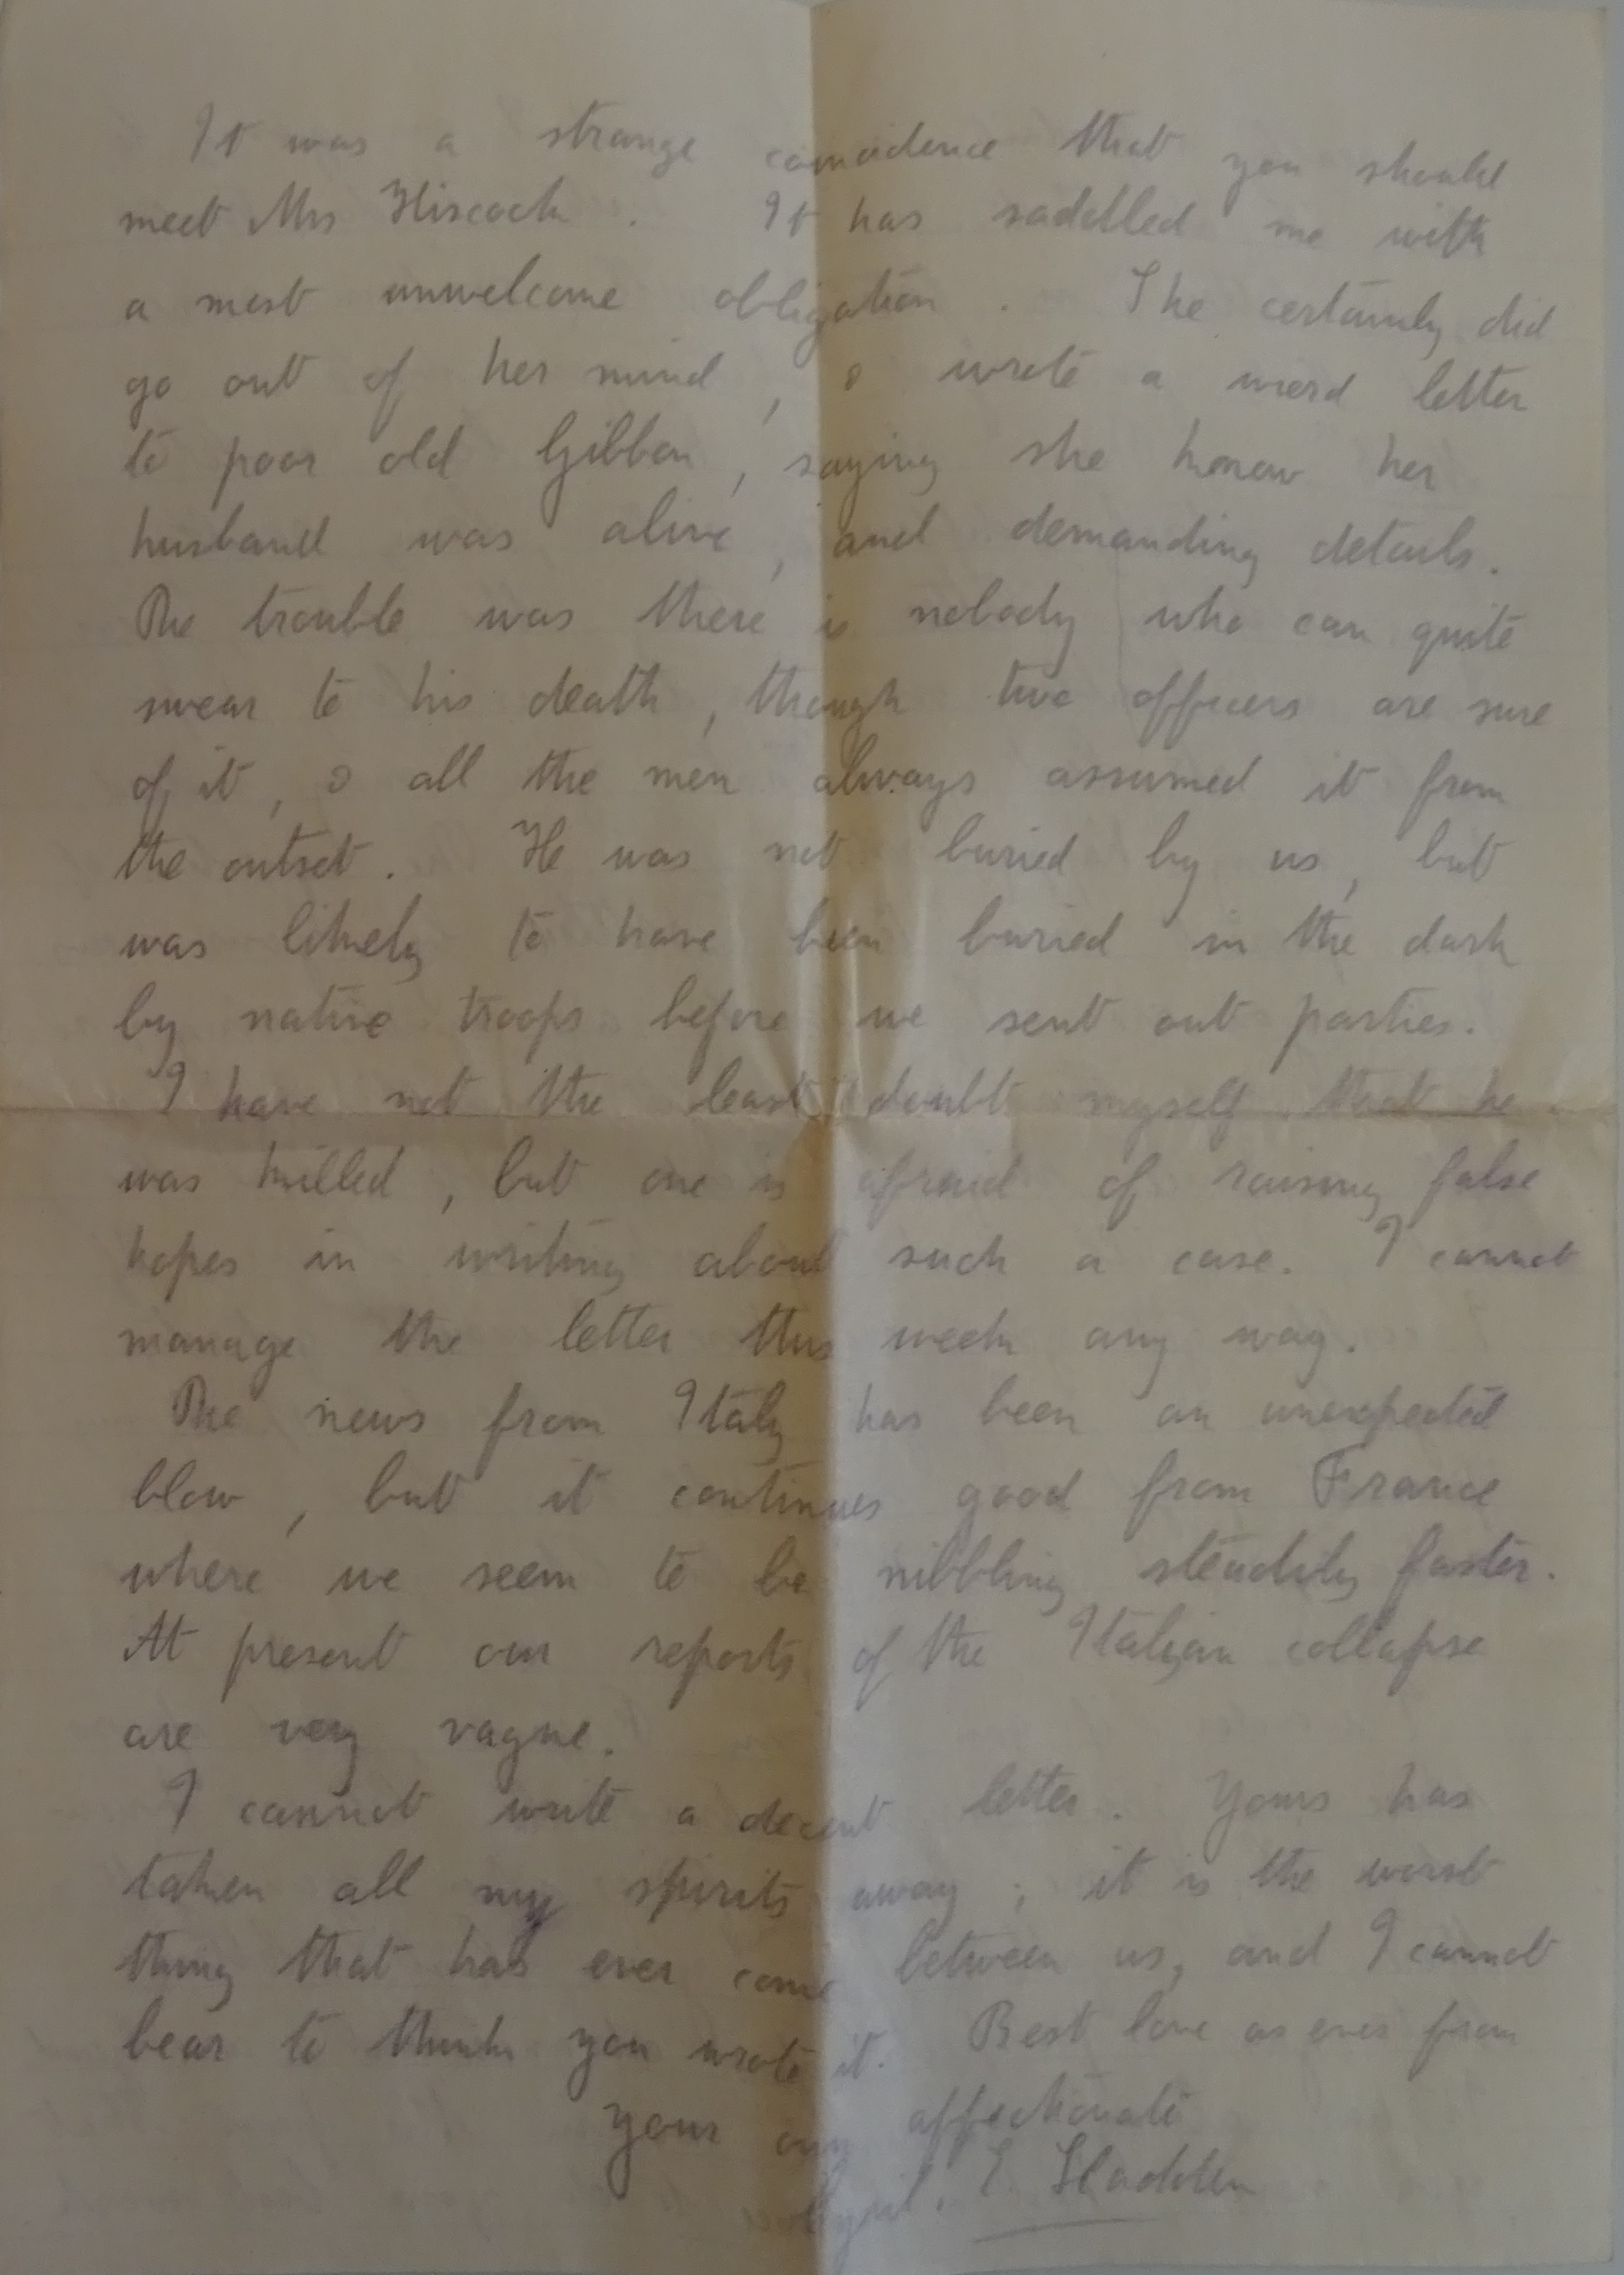 It was a strange coincidence that you should
meet Mrs Hiscock. It has saddled me with
a most unwelcome obligation. She certainly did
go out of her mind, & wrote a wierd letter
to poor old Gibbon, saying she knew her
husband was alive, and demanding details.
The trouble was there is nobody who can quite
swear to his death, though two officers are sure
of it, & all the men always assumed it from
the outset. He was not buried by us, but
was likely to have been buried in the dark
by native troops before we sent out parties.
I have not the least doubt myself that he
was killed, but one is afraid of raising false
hopes in writing about such a case. I cannot
manage the letter this week any way.
The news from Italy has been an unexpected
blow, but it continues good from France
where we seem to be nibbling steadily faster.
At present our reports of the Italian collapse
are very vague.
I cannot write a decent letter. Yours has
taken all my spirits away; it is the worst
thing that has ever come between us, and I cannot
bear to think you wrote it. Best love as ever from
your own affectionate
E. Sladden